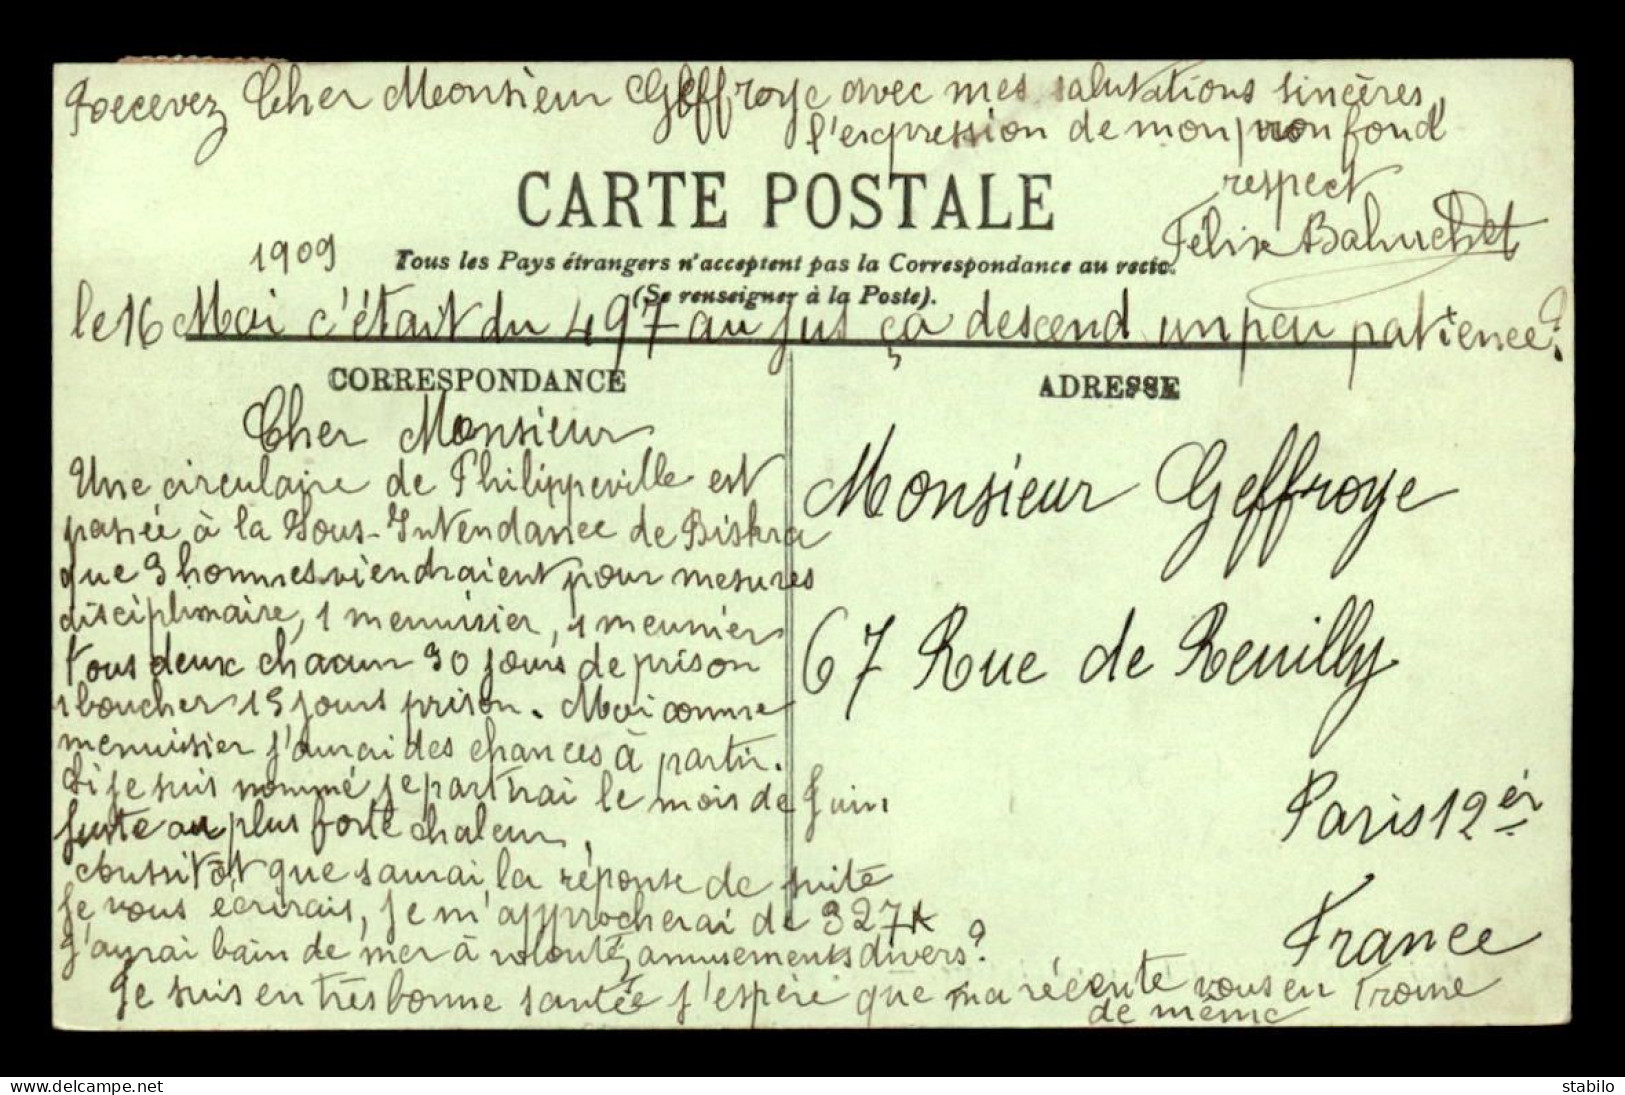 Recevez Cher Monsieur Geffroye avec mes salutations sincères,
l'expression de mon profond
respect
Félix Bahuchet
CARTE POSTALE
1909
Tous les Pays étrangers n'acceptent pas la Correspondance au recto.
(Se renseigner à la Poste).
le 16 Mai c'était du 497 au jus ça descend un peu patience?
CORRESPONDANCE
Cher Monsieur
Une circulaire de Philippeville est
passée à la Sous-Intendance de Biskra
que 3 hommes viendraient pour mesures
disciplinaire, 1 menuisier, 1 meunier
tous deux chacun 30 jours de prison
1 boucher 15 jours prison. Moi comme
menuisier j'aurai des chances à partir.
Si je suis nommé, je partirai le mois de Juin
juste au plus forte chaleur,
Aussitôt que saurai la réponse de suite
je vous écrirais, je m'approcherai de 327 k
j'aurai bain de mer à volonté, amusements divers?
Je suis en très bonne santée j'espère que ma récente vous en trouve
de même
ADRESSE
Monsieur Geffroye
67 Rue de Reuilly
Paris 12 èr
France
delcampe.net
stabilo